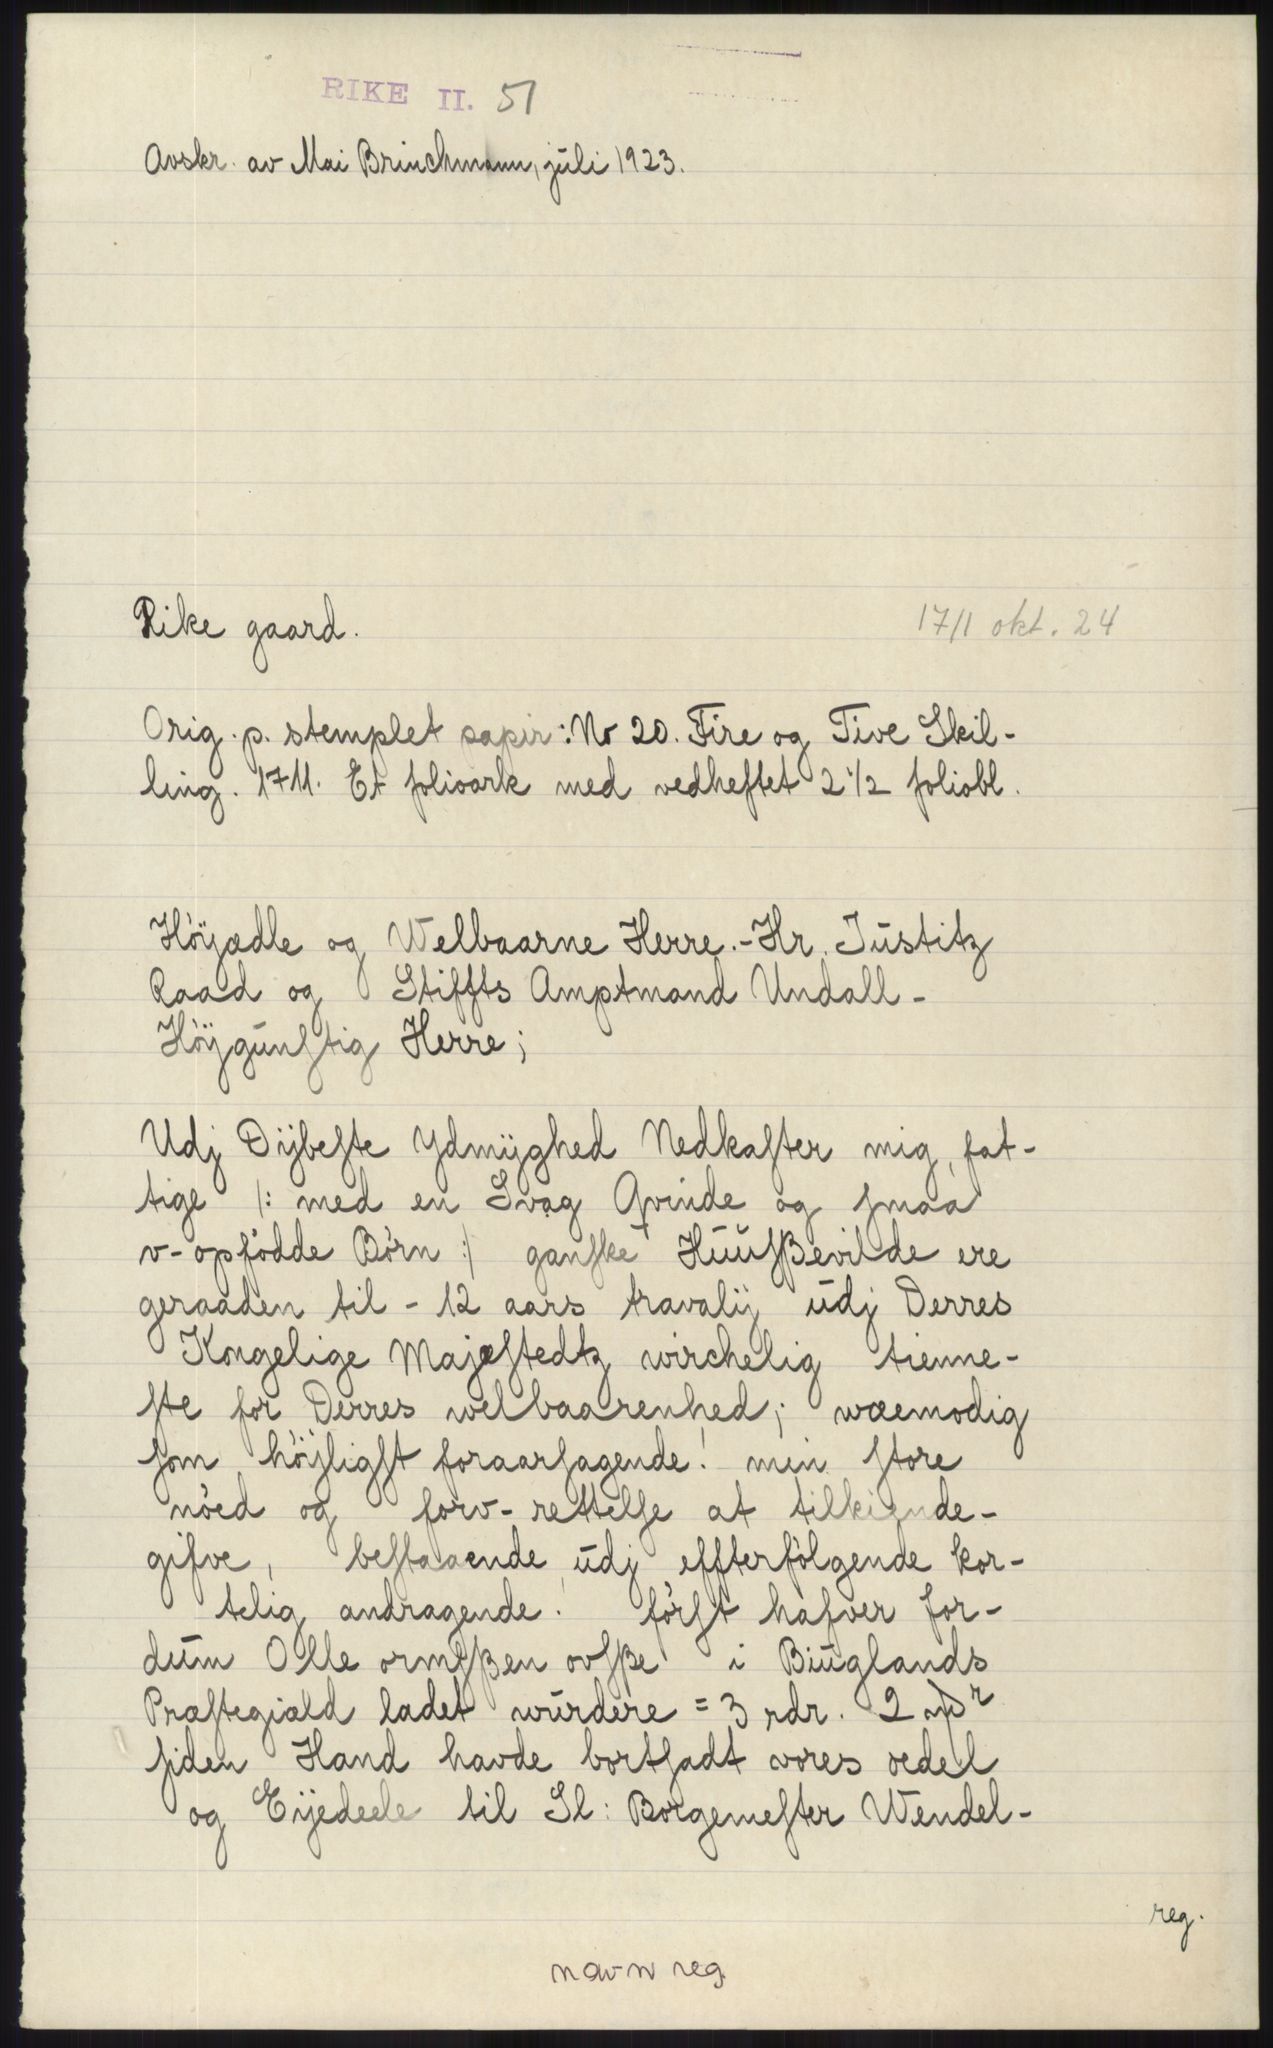 RIKE II. 51
Avskr. av Mai Brinchmann, juli 1923.
Rike gaard.
1711 okt. 24
Orig. p. stemplet papir: No 20. Fire og Tive Skil-
ling. 1711. Et folioark med vedheftet 2 1/2 foliobl.
Höÿædle og Welbaarne Herre.- Hr. Justitz
Raad og Stiffts Amptmand Undall-
Höÿgunstig Herre;
Udj Dÿbeste Ydmÿghed Nedkaster mig, fat-
tige /: med en Svag Qvinde og smaa
v-opfödde Börn :/ ganske Huusßevilde ere
geraaden til - 12 aars travalÿ udj Derres
Kongelige Majestedtz wirchelig tienne-
ste for Derres welbaarenhed; wæmodig
som höÿligst foraarsagende! min store
nöed og forv-rettelse at tilkiende-
gifve, bestaaende udj effterfölgende kor-
telig andragende. först hafver for-
dum Olle ormsßen ovsße i Biuglands
Præstegiæld ladet wurdere = 3 rdr. 2
siden Hand havde bortsadt vores oedel
og Eÿedeele til Sl: Borgemester Wendel-
reg.
navn reg.